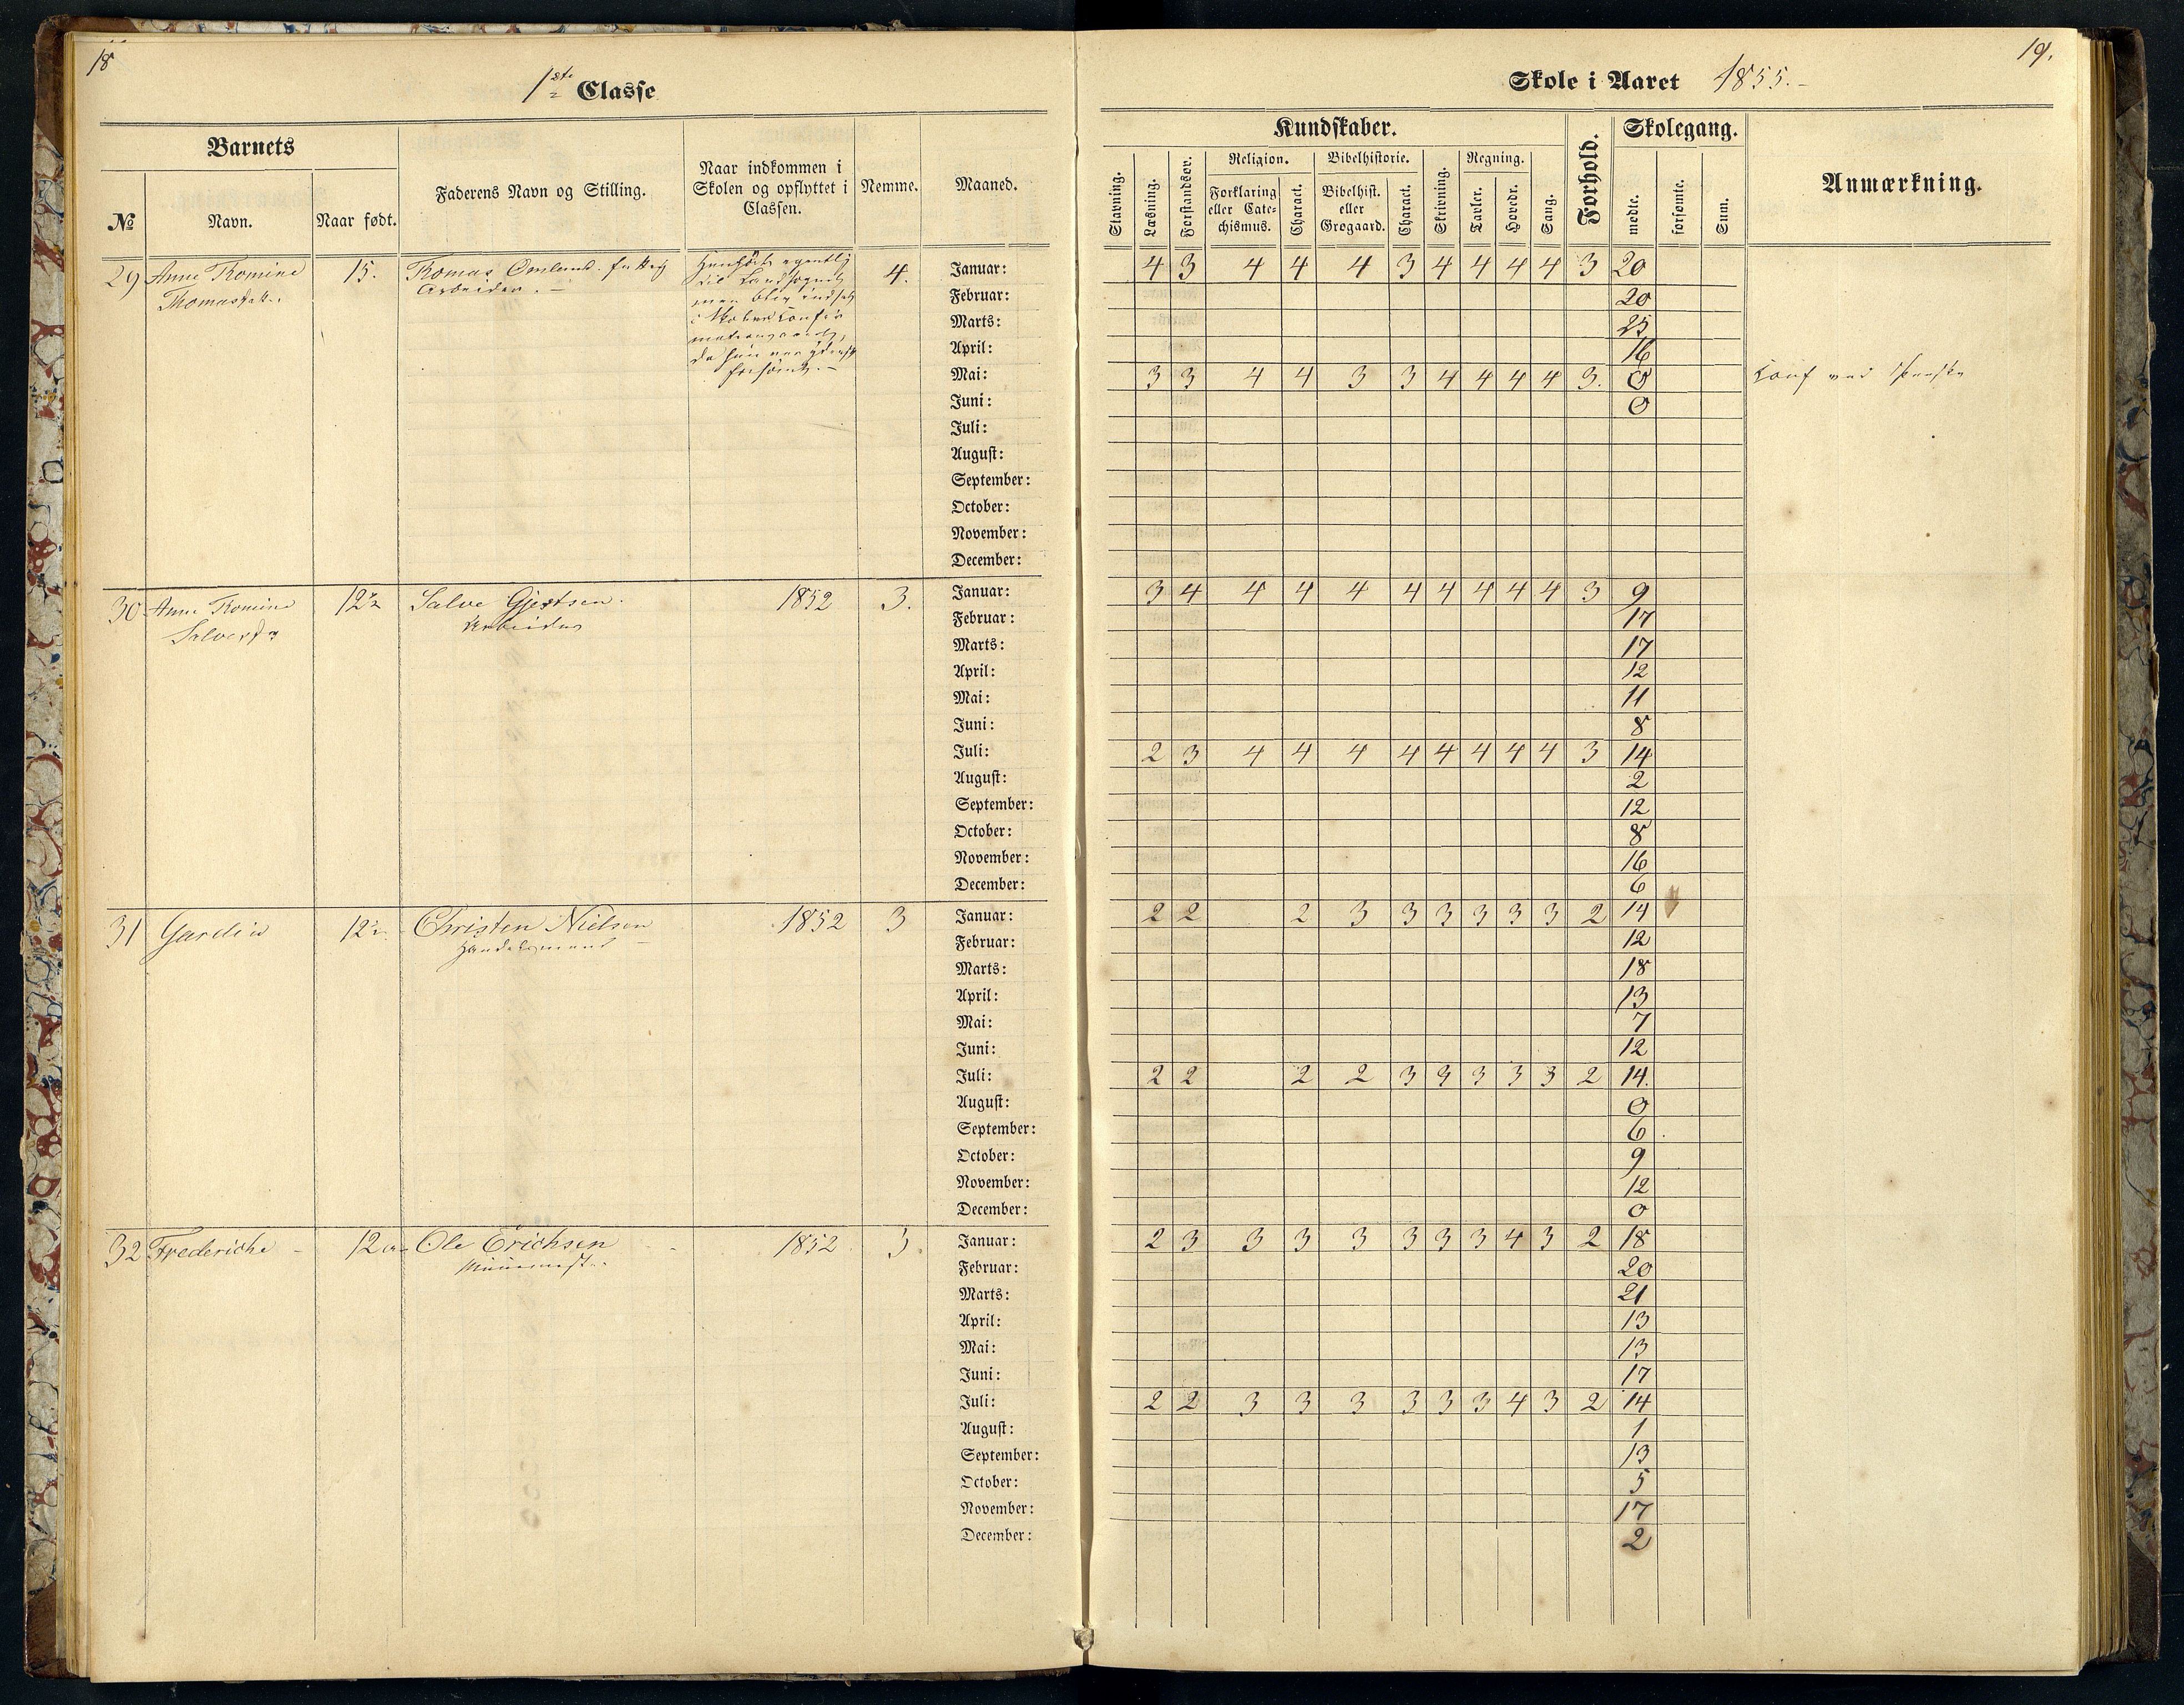 18
1ste Classe
Barnets
№
Navn.
Naar født.
Faderens Navn og Stilling.
Naar indkommen i
Skolen og opflyttet i
Classen.
Nemme.
Maaned.
29 Anne Tomine 15. Tomas Omland. 4.
Arbeider.
til Landsognet
men blev indsat
da hun var
forsømt.
Januar:
Februar:
Marts:
April:
Mai:
Juni:
Juli:
August:
September:
October:
November:
December:
30 Anne Tomine 12½ Salve Gjertsen. 1852 3.
Arbeider
Januar:
Februar:
Marts:
April:
Mai:
Juni:
Juli:
August:
September:
October:
November:
December:
31 Christen Nielsen 1852 3
Handelsmand
Januar:
Februar:
Marts:
April:
Mai:
Juni:
Juli:
August:
September:
October:
November:
December:
32 Frederiche Ole Erichsen 1852 3.
Januar:
Februar:
Marts:
April:
Mai:
Juni:
Juli:
August:
September:
October:
November:
December:
19.
Skole i Aaret 1855.-
Kundskaber.
Forhold.
Skolegang.
Anmærkning.
Stavning.
Læsning.
Forstandsøv.
Religion.
Forklaring
eller Cate-
chismus.
Charact.
Bibelhistorie.
Bibelhist.
eller
Grøgaard.
Charact.
Skrivning.
Regning.
Tavler.
Hovedr.
Sang.
mødte.
forsømte.
Sum.
4 3 4 4 4 3 4 4 4 4 3 20
20
25
16
3 3 4 4 3 3 4 4 4 4 3.
0
3 4 4 4 4 4 4 4 4 4 3 9
17
17
12
11
8
2 3 4 4 4 4 4 4 4 4 3 14
2
12
8
16
6
2 2 2 3 3 3 3 3 3 2 14
12
18
13
7
12
2 2 2 2 3 3 3 3 3 2 14.
0
6
9
12
0
2 3 3 3 3 3 3 3 4 3 2 18
20
21
13
13
17
2 2 3 3 3 3 3 3 4 3 2 14
1
13
5
17
2